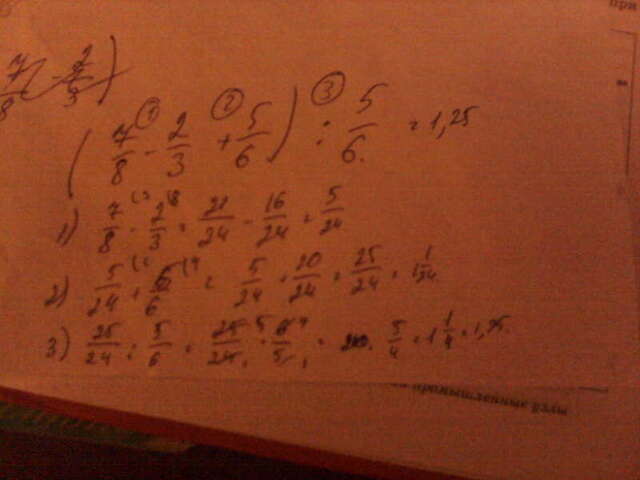 при
7/8 - 2/3)
① ② ③
(7/8 - 2/3 + 5/6) : 5/6 = 1,25
1) 7/8 - 2/3 = 21/24 - 16/24 = 5/24
2) 5/24 + 5/6 = 5/24 + 20/24 = 25/24 = 1 1/24
3) 25/24 : 5/6 = 25/24 · 6/5 = 5/4 = 1 1/4 = 1,25.
промышленные узлы